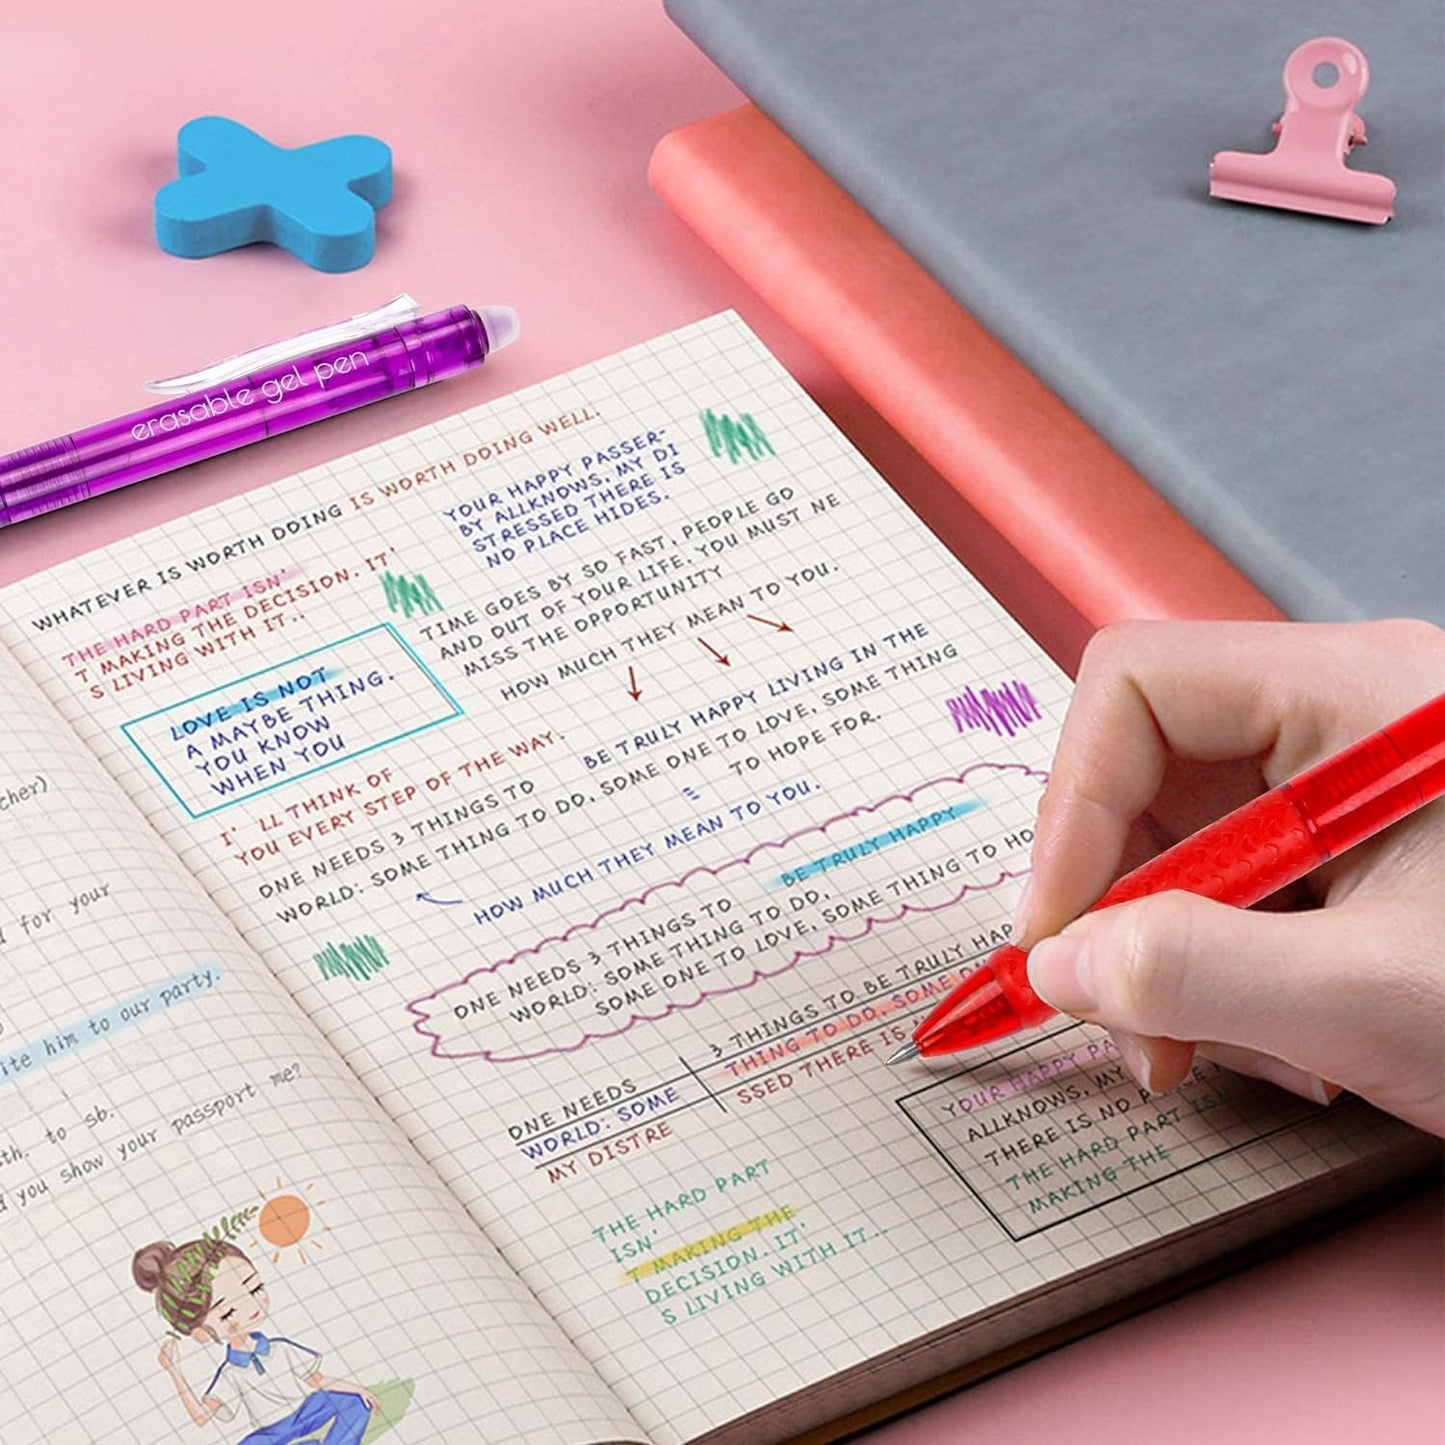 erasable gel pen
WHATEVER IS WORTH DOING IS WORTH DOING WELL.
THE HARD PART ISN'
T MAKING THE DECISION. IT'
S LIVING WITH IT..
YOUR HAPPY PASSER-
BY ALLKNOWS, MY DI
STRESSED THERE IS
NO PLACE HIDES.
TIME GOES BY SO FAST, PEOPLE GO
AND OUT OF YOUR LIFE. YOU MUST NE
MISS THE OPPORTUNITY
HOW MUCH THEY MEAN TO YOU.
LOVE IS NOT
A MAYBE THING.
YOU KNOW
WHEN YOU
I' LL THINK OF
YOU EVERY STEP OF THE WAY.
BE TRULY HAPPY LIVING IN THE
ONE NEEDS 3 THINGS TO
WORLD: SOME THING TO DO, SOME ONE TO LOVE, SOME THING
TO HOPE FOR.
HOW MUCH THEY MEAN TO YOU.
BE TRULY HAPPY
ONE NEEDS 3 THINGS TO
WORLD: SOME THING TO DO,
SOME ONE TO LOVE, SOME THING TO HO
3 THINGS TO BE TRULY HAP
THING TO DO, SOME ON
SSED THERE IS
ONE NEEDS
WORLD: SOME
MY DISTRE
YOUR HAPPY PA
ALLKNOWS, MY
THERE IS NO
THE HARD PART ISN
MAKING THE
THE HARD PART
ISN'
T MAKING THE
DECISION. IT'
S LIVING WITH IT..
cher)
for your
ite him to our party.
sth. to sb.
you show your passport me?